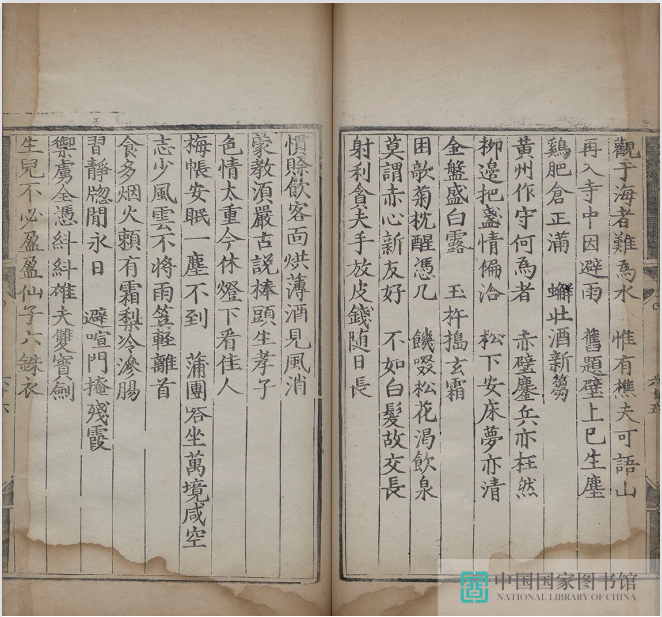 觀于海者難爲水　惟有樵夫可語山
再入寺中因避雨　舊題壁上已生塵
鷄肥倉正滿　蠏壯酒新蒭
黃州作守何爲者　赤壁鏖兵亦枉然
柳邊把盞情偏洽　松下安床夢亦清
金盤盛白露　玉杵搗玄霜
困欹菊枕醒憑几　饑啜松花渴飲泉
莫謂赤心新友好　不如白髮故交長
射利貪夫手放皮錢隨日長
慣賒飲客面烘薄酒見風消
蒙教須嚴古説棒頭生孝子
色情太重今休燈下看佳人
梅帳安眠一塵不到　蒲團坐萬境咸空
志少風雲不將雨笠輕離首
食多烟火頼有霜梨冷滲腸
習靜牕閒永日　避喧門掩殘霞
禦虜全憑糾糾雄夫雙寶劍
生兒不必盈盈仙子六銖衣
中国国家图书馆
NATIONAL LIBRARY OF CHINA